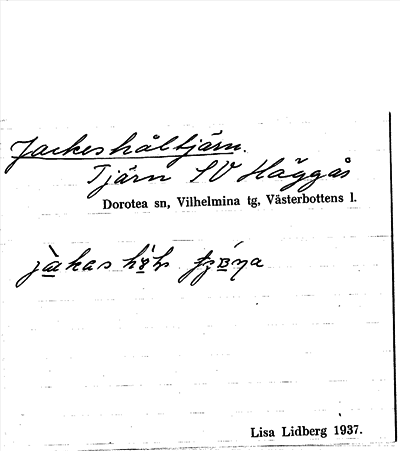 Jackeshåltjärn.
Tjärn SV Häggås
Dorotea sn, Vilhelmina tg, Västerbottens l.
Lisa Lidberg 1937.